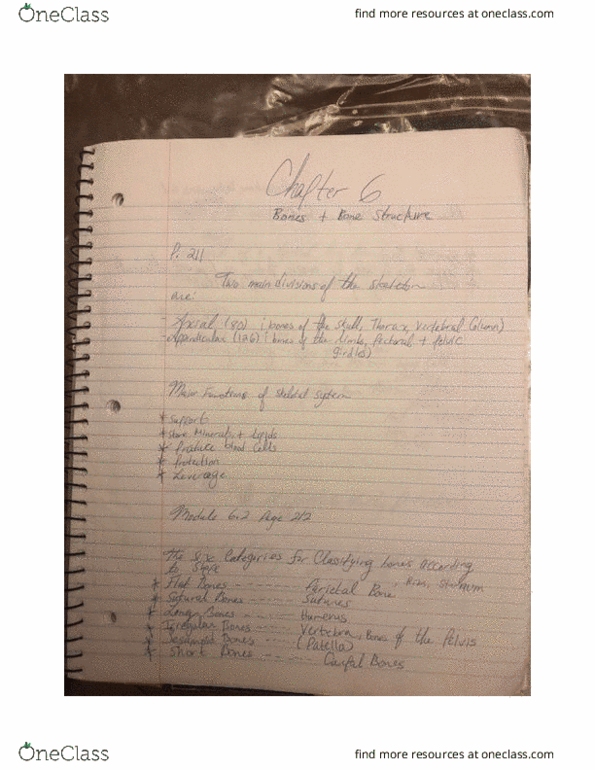 OneClass
find more resources at oneclass.com
Chapter 6
Bones + Bone Structure
P. 211
Two main divisions of the skeleton
are:
Axial (80) ; bones of the Skull, Thorax, Vertebral Column)
Appendicular (126) ; bones of the limbs, Pectoral + pelvic
girdles)
Major Functions of skeletal system
* Support
* store Minerals + Lipids
* Produce blood Cells
* Protection
* Leverage
Module 6.2 Page 212
The six Categories for Classifying bones according
to
* Flat Bones ------ Perietal Bone, Ribs,
* Sutural Bones ----- Sutures
* Long Bones ----- Humerus
* Irregular Bones ---- Vertebra, Bones of the Pelvis
* Bones ---- (Patella)
* Short Bones ---- Bones
OneClass
find more resources at oneclass.com